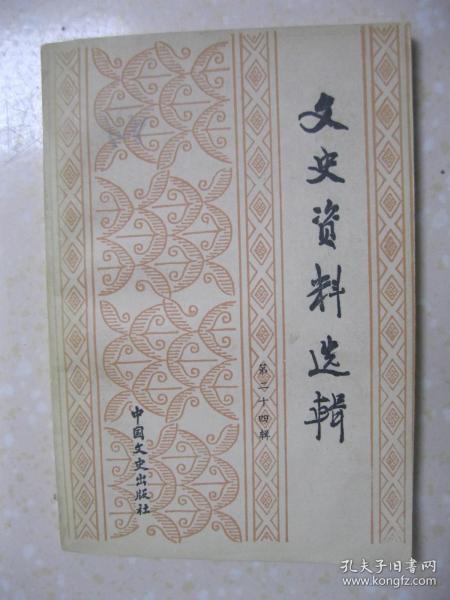 文史资料选辑
第二十四辑
中国文史出版社
孔夫子旧书网
www.kongfz.com